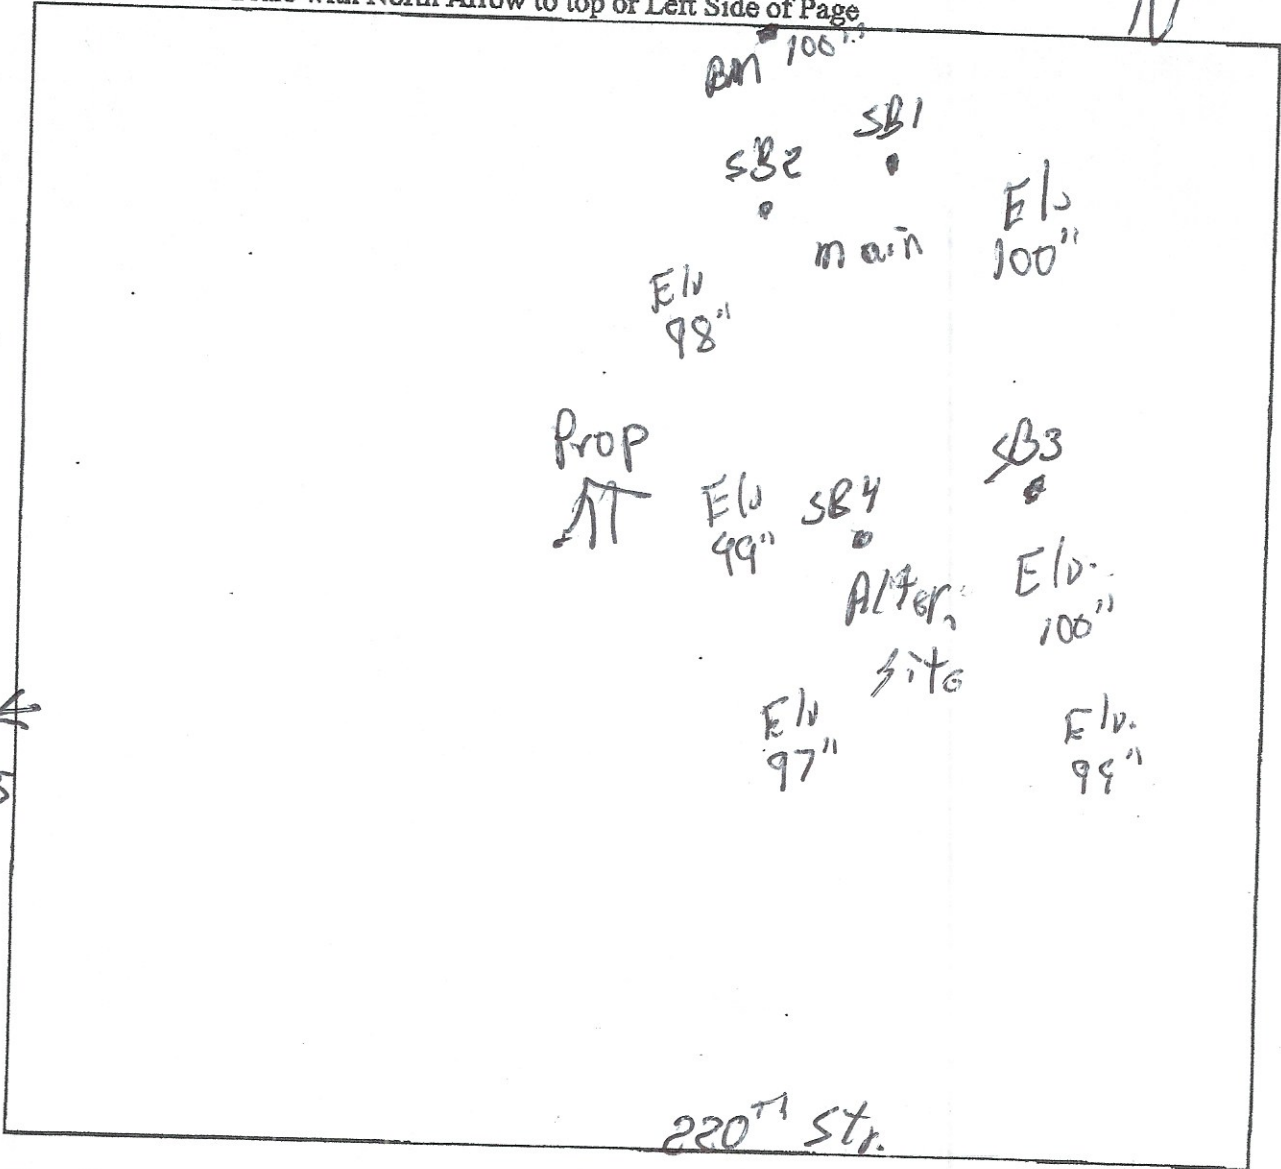 with North Arrow to top or Left Side of Page
N
BM 100"
SB1
SB2
Elv
100"
main
Elv
98"
Prop
SB3
Elv
99"
SB4
Alter.
site
Elv.
100"
Elv
97"
Elv.
99"
220TH Str.